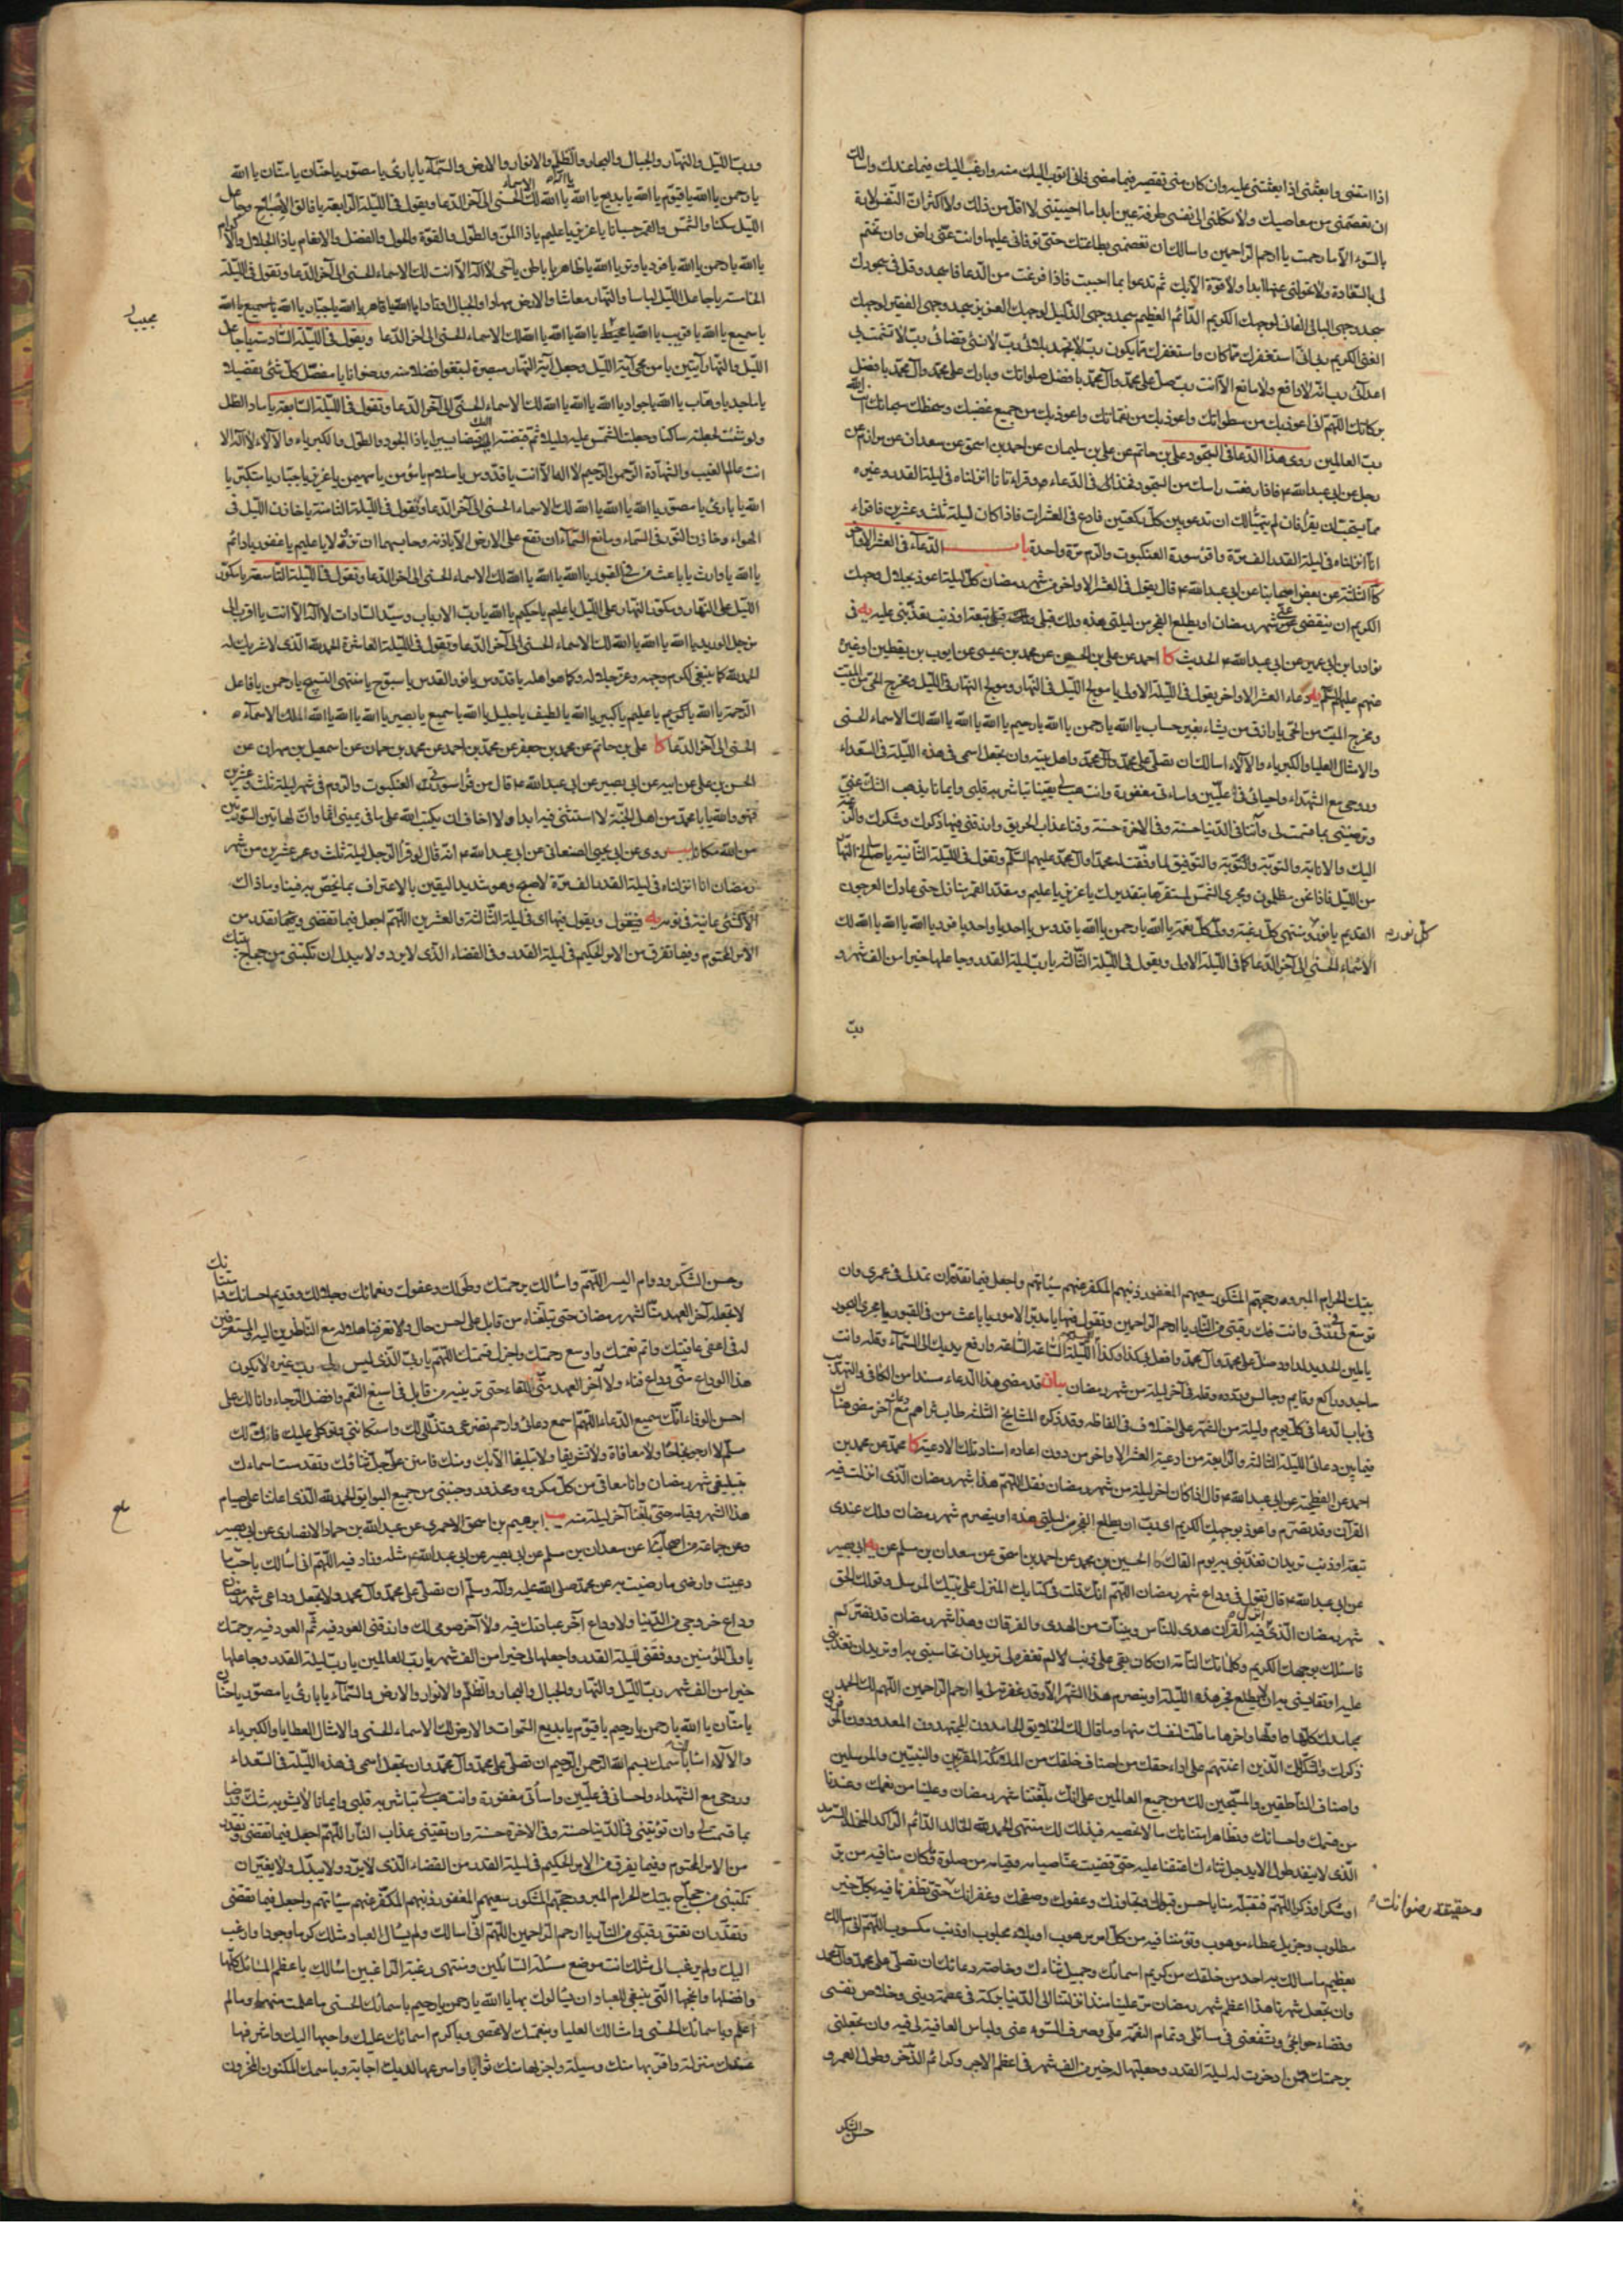 اذا استغنى وابعثنى اذا بعثتنى عليه وان كان منى تقصير فيما مضى فانى اتوب اليك منه وارغب اليك فيما عندك واسالك
ان تعصمنى من معاصيك ولا تكلنى الى نفسى طرفة عين ابدا ما احييتنى لا اقل من ذلك ولا اكثر ان النفس لامارة
بالسوء الا ما رحمت يا ارحم الراحمين واسالك ان تعصمنى بطاعتك حتى توفانى عليها وانت عنى راض وان تختم
لى بالسعادة ولا تحولنى عنها ابدا ولا قوة الا بك ثم تدعوا بما احببت فاذا فرغت من الدعا فاسجد وقل فى سجودك
سجد وجهى البالى الفانى لوجهك الكريم الدائم العظيم سجد وجهى الذليل لوجهك العزيز سجد وجهى الفقير لوجهك
الغنى الكريم رب انى استغفرك مما كان واستغفرك مما يكون رب لا تجهد بلائى رب لا تسئ قضائى رب لا تشمت بى
اعدائى رب انه لا دافع ولا مانع الا انت رب صل على محمد وال محمد بافضل صلواتك وبارك على محمد وال محمد بافضل
بركاتك اللهم انى اعوذ بك من سطواتك واعوذ بك من نقماتك واعوذ بك من جميع غضبك وسخطك سبحانك انت الله
رب العالمين روى هذا الدعا فى السجود على بن حاتم عن على بن سليمان عن احمد بن اسحق عن سعدان عن مرازم عن
رجل عن ابى عبد الله ع فاذا رفعت راسك من السجود فخذ فى الدعاء وقراءة انا انزلناه فى ليلة القدر وغيره
مما يستحب ان يقرأ فان لم يتهيأ لك ان تدعو بين كل ركعتين فادع فى العشرات فاذا كان ليلة ثلث وعشرين فاقراء
انا انزلناه فى ليلة القدر الف مرة واقرء سورة العنكبوت والروم مرة واحدة باب الدعآء فى العشر الاواخر
كا الثلثة عن بعض اصحابنا عن ابى عبد الله ع قال يقول فى العشر الاواخر من شهر رمضان كل ليلة اعوذ بجلال وجهك
الكريم ان ينقضى عنى شهر رمضان او يطلع الفجر من ليلتى هذه ولك قبلى تبعة او ذنب تعذبنى عليه يه فى
نوادر ابن ابى عمير عن ابى عبد الله ع الحديث كا احمد عن على بن الحسين عن محمد بن عيسى عن ايوب بن يقطين او غيره
عنهم عليهم السلم يه دعاء العشر الاواخر يقول فى الليلة الاولى يا مولج الليل فى النهار ومولج النهار فى الليل ومخرج الحى من الميت
ومخرج الميت من الحى يا رازق من يشاء بغير حساب يا الله يا رحمن يا الله يا رحيم يا الله يا الله يا الله لك الاسماء الحسنى
والامثال العليا والكبرياء والآلاء اسالك ان تصلى على محمد وال محمد واهل بيته وان تجعل اسمى فى هذه الليلة فى السعداء
وروحى مع الشهداء واحسانى فى عليين واسائتى مغفورة وان تهب لى يقينا تباشر به قلبى وايمانا يذهب الشك عنى
وترضينى بما قسمت لى وآتنا فى الدنيا حسنة وفى الاخرة حسنة وقنا عذاب الحريق وارزقنى فيها ذكرك وشكرك والرغبة
اليك والانابة والتوبة والتوفيق لما وفقت له محمدا وال محمد عليهم السلم وتقول فى الليلة الثانية يا سالخ النهار
من الليل فاذا نحن مظلمون ومجرى الشمس لمستقرها بتقديرك يا عزيز يا عليم ومقدر القمر منازل حتى عاد كالعرجون
القديم يا نور ومنتهى كل رغبة وولى كل نعمة يا الله يا رحمن يا الله يا قدوس يا احد يا واحد يا فرد يا الله يا الله يا الله لك
كل نور م
الاسماء الحسنى الى آخر الدعا كما فى الليلة الاولى ويقول فى الليلة الثالثة يا رب ليلة القدر وجاعلها خيرا من الف شهر و
رب
ورب الليل والنهار والجبال والبحار والظلم والانوار والارض والسمآء يا بارئ يا مصور يا حنان يا منان يا الله
يا رحمن يا الله يا قيوم يا الله يا بديع يا الله يا الله يا الله لك الاسماء الحسنى الى آخر الدعا ويقول فى الليلة الرابعة يا فالق الاصباح وجاعل
الليل سكنا والشمس والقمر حسبانا يا عزيز يا عليم يا ذا المن والطول والقوة والحول والفضل والانعام يا ذا الجلال والاكرام
يا الله يا رحمن يا الله يا فرد يا وتر يا الله يا ظاهر يا باطن يا حى لا اله الا انت لك الاسماء الحسنى الى آخر الدعا وتقول فى الليلة
الخامسة يا جاعل الليل لباسا والنهار معاشا والارض مهادا والجبال اوتادا يا الله يا قاهر يا الله يا جبار يا الله يا سميع يا الله
يا سميع يا الله يا قريب يا الله يا محيط يا الله يا الله يا الله لك الاسماء الحسنى الى اخر الدعا ويقول فى الليلة السادسة يا جاعل
مجيب
الليل والنهار آيتين يا من محى آية الليل وجعل آية النهار مبصرة لتبتغوا فضلا منه ورضوانا يا مفصل كل شئ تفصيلا
يا ماجد يا وهاب يا الله يا جواد يا الله يا الله يا الله لك الاسماء الحسنى الى آخر الدعا وتقول فى الليلة السابعة يا ماد الظل
ولو شئت لجعلته ساكنا وجعلت الشمس عليه دليلا ثم قبضته اليك قبضا يسيرا يا ذا الجود والطول والكبرياء والآلاء لا اله الا
انت عالم الغيب والشهادة الرحمن الرحيم لا اله الا انت يا قدوس يا سلام يا مؤمن يا مهيمن يا عزيز يا جبار يا متكبر يا
الله يا بارئ يا مصور يا الله يا الله يا الله لك الاسماء الحسنى الى آخر الدعا وتقول فى الليلة الثامنة يا خازن الليل فى
الهواء وخازن النور فى السماء ومانع السمآء ان تقع على الارض الا باذنه وحابسهما ان تزولا يا عليم يا غفور يا دائم
يا الله يا وارث يا باعث من فى القبور يا الله يا الله يا الله لك الاسماء الحسنى الى اخر الدعا وتقول فى الليلة التاسعة يا مكور
الليل على النهار ومكور النهار على الليل يا عليم يا حكيم يا الله يا رب الارباب وسيد السادات لا اله الا انت يا اقرب الى
من حبل الوريد يا الله يا الله يا الله لك الاسماء الحسنى الى آخر الدعا وتقول فى الليلة العاشرة الحمد لله الذى لا شريك له
الحمد لله كما ينبغى لكرم وجهه وعز جلاله وكما هو اهله يا قدوس يا نور القدس يا سبوح يا منتهى التسبيح يا رحمن يا فاعل
الرحمة يا الله يا كريم يا عليم يا كبير يا الله يا لطيف يا جليل يا الله يا سميع يا بصير يا الله يا الله يا الله الملك الاسمآء
الحسنى الى آخر الدعا كا على بن حاتم عن محمد بن جعفر عن محمد بن احمد عن محمد بن حسان عن اسمعيل بن مهران عن
الحسن بن على عن ابيه عن ابى بصير عن ابى عبد الله ع قال من قرأ سورتى العنكبوت والروم فى شهر ليلة ثلث وعشرين
فهو والله يا با محمد من اهل الجنة لا استثنى فيه ابدا ولا اخاف ان يكتب الله على ما فى يمينى اثما وان لهاتين السورتين
من الله مكانا روى عن ابى يحيى الصنعانى عن ابى عبد الله ع انه قال لو قرأ الرجل ليلة ثلث وعشرين من شهر
رمضان انا انزلناه فى ليلة القدر الف مرة لاصبح وهو شديد اليقين بالاعتراف بما يخص به فينا وما ذاك
الا لشئ عاينه فى نومه يه فيقول ويقول فيها اى فى ليلة الثالثة والعشرين اللهم اجعل فيما تقضى وفيما تقدر من
الامر المحتوم وفيما تفرق من الامر الحكيم فى ليلة القدر وفى القضاء الذى لا يرد ولا يبدل ان تكتبنى من حجاج بيتك
بيتك الحرام المبرور حجهم المشكور سعيهم المغفور ذنبهم المكفر عنهم سيئاتهم واجعل فيما تقدر ان تمد لى فى عمرى وان
توسع لى فى رزقى وانت فك رقبتى من النار يا ارحم الراحمين وتقول فيها يا مدبر الامور يا باعث من فى القبور يا مجرى البحور
يا ملين الحديد لداود صل على محمد وال محمد وافعل بى كذا وكذا الليلة الليلة الساعة الساعة وارفع يديك الى السمآء وقله وانت
ساجد وراكع وقايم وجالس وردده وقله فى آخر ليلة من شهر رمضان بيان قد مضى هذا الدعاء مسندا من الكافى والتهذيب
فى باب الدعا فى كل يوم وليلة من الشهر على اختلاف فى الفاظه وقد ذكره المشايخ الثلثة طاب ثراهم مع دعاء آخر مضى هناك
فيما بين دعائى الليلة الثالثة والرابعة من ادعية العشر الاواخر من دون اعاده اسناد تلك الادعية كا محمد عن محمد بن
احمد عن الفطحية عن ابى عبد الله ع قال اذا كان اخر ليلة من شهر رمضان فقل اللهم هذا شهر رمضان الذى انزلت فيه
القرآن وقد تصرم واعوذ بوجهك الكريم اى رب ان يطلع الفجر من ليلتى هذه او ينصرم شهر رمضان ولك عندى
تبعة او ذنب تريد ان تعذبنى به يوم القاك كا الحسين بن محمد عن احمد بن اسحق عن سعدان بن مسلم عن ابى بصير
عن ابى عبد الله ع قال تقول فى وداع شهر رمضان اللهم انك قلت فى كتابك المنزل على نبيك المرسل وقولك الحق
شهر رمضان الذى انزل فيه القران هدى للناس وبينات من الهدى والفرقان وهذا شهر رمضان قد تصرم
فاسئلك بوجهك الكريم وكلماتك التامة ان كان بقى على ذنب لم تغفره لى تريد ان تحاسبنى به او تريد ان تعذبنى
عليه او تقايسنى به ان لا يطلع فجر هذه الليلة او ينصرم هذا الشهر الا وقد غفرته لى يا ارحم الراحمين اللهم لك الحمد
بمحامدك كلها اولها واخرها ما قلت لنفسك منها وما قال لك الخلايق الحامدون المجتهدون المعدودون الموقرون
ذكرك والشكر لك الذين اعنتهم على اداء حقك من اصناف خلقك من الملئكة المقربين والنبيين والمرسلين
واصناف الناطقين والمسبحين لك من جميع العالمين على انك بلغتنا شهر رمضان وعلينا من نعمك وعندنا
من قسمك واحسانك وتظاهر امتنانك ما لا نحصيه فبذلك لك منتهى الحمد لله الخالد الدائم الراكد المخلد السرمد
الذى لا ينفد طول الابد جل ثناءك اعنتنا عليه حتى قضيت عنا صيامه وقيامه من صلوة وما كان منا فيه من بر
او شكر او ذكر اللهم فتقبله منا باحسن قبولك وتجاوزك وعفوك وصفحك وغفرانك حتى تظفرنا فيه بكل خير
وحقيقة رضوانك م
مطلوب وجزيل عطاء موهوب وتومننا فيه من كل امر مرهوب او بلاء مجلوب او ذنب مكسوب اللهم انى اسالك
بعظيم ما سالك به احد من خلقك من كريم اسمائك وجميل ثناءك وخاصة دعائك ان تصلى على محمد وال محمد
وان تجعل شهرنا هذا اعظم شهر رمضان مر علينا منذ انزلتنا الى الدنيا بركة فى عصمة دينى وخلاص نفسى
وقضاء حوائجى وتشفعنى فى مسائلى وتمام النعمة على وصرف السوء عنى ولباس العافية لى فيه وان تجعلنى
برحمتك ممن ادخرت له ليلة القدر وجعلتها له خير من الف شهر فى اعظم الاجر وكرائم الذخر وطول العمر و
حسن الشكر
وحسن الشكر ودوام اليسر اللهم واسالك برحمتك وطولك وعفوك ونعمائك وجلالك وقديم احسانك وامتنانك
لا تجعله آخر العهد منا لشهر رمضان حتى تبلغناه من قابل على احسن حال وتعرفنا هلاله مع الناظرين اليه والمتعرفين
له فى اعفى عافيتك واتم نعمتك واوسع رحمتك واجزل قسمك اللهم يا رب الذى ليس لى رب غيره لا يكون
هذا الوداع منى وداع فناء ولا آخر العهد منى للقاء حتى ترينيه من قابل فى اسبغ النعم وافضل الرجاء وانا لك على
احسن الوفاء انك سميع الدعاء اللهم اسمع دعائى وارحم تضرعى وتذللى لك واستكانتى وتوكلى عليك فانا لك
مسلم لا ارجو نجاحا ولا معافاة ولا تشريفا ولا تبليغا الا بك ومنك فامنن على جل ثنائك وتقدست اسماءك
بتبليغى شهر رمضان وانا معافى من كل مكروه ومحذور وجنبنى من جميع البوايق الحمد لله الذى اعاننا على صيام
هذا الشهر وقيامه حتى بلغنا آخر ليلة منه يب ابرهيم بن اسحق الاحمرى عن عبد الله بن حماد الانصارى عن ابى بصير
وعن جماعة من اصحابنا عن سعدان بن مسلم عن ابى بصير عن ابى عبد الله ع مثله وزاد فيه اللهم انى اسالك باحب ما
دعيت وارضى ما رضيت به عن محمد صلى الله عليه وآله وسلم ان تصلى على محمد وال محمد ولا تجعل وداعى شهر رمضان
وداع خروجى من الدنيا ولا وداع آخر عبادتك فيه ولا آخر صومى لك وارزقنى العود فيه ثم العود فيه برحمتك
يا ولى المؤمنين ووفقنى لليلة القدر واجعلها لى خيرا من الف شهر يا رب العالمين يا رب ليلة القدر وجاعلها
خيرا من الف شهر رب الليل والنهار والجبال والبحار والظلم والانوار والارض والسمآء يا بارئ يا مصور يا حنان
يا منان يا الله يا رحمن يا رحيم يا قيوم يا بديع السموات والارض لك الاسماء الحسنى والامثال العليا والكبرياء
والآلاء اسالك باسمك بسم الله الرحمن الرحيم ان تصلى على محمد وآل محمد وان تجعل اسمى فى هذه الليلة فى السعداء
وروحى مع الشهداء واحسانى فى عليين واسائتى مغفورة وان تهب لى يقينا تباشر به قلبى وايمانا لا يشوبه شك ورضا
بما قسمت لى وان توتينى فى الدنيا حسنة وفى الاخرة حسنة وان تقينى عذاب النار اللهم اجعل فيما تقضى وتقدر
من الامر المحتوم وفيما يفرق من الامر الحكيم فى ليلة القدر من القضاء الذى لا يرد ولا يبدل ولا يغير ان
تكتبنى من حجاج بيتك الحرام المبرور حجهم المشكور سعيهم المغفور ذنبهم المكفر عنهم سيئاتهم واجعل فيما تقضى
وتقدر ان تعتق رقبتى من النار يا ارحم الراحمين اللهم انى اسالك ولم يسال العباد مثلك كرما وجودا وارغب
اليك ولم يرغب الى مثلك انت موضع مسئلة السائلين ومنتهى رغبة الراغبين اسالك باعظم المسائل كلها
وافضلها وانجحها التى ينبغى للعباد ان يسالوك بها يا الله يا رحمن يا رحيم باسمائك الحسنى ما علمت منها وما لم
اعلم وباسمائك الحسنى وامثالك العليا وبنعمتك لا تحصى وباكرم اسمائك عليك واحبها اليك واشرفها
عندك منزلة واقربها منك وسيلة واجزلها منك ثوابا واسرعها لديك اجابة وباسمك المكنون المخزون